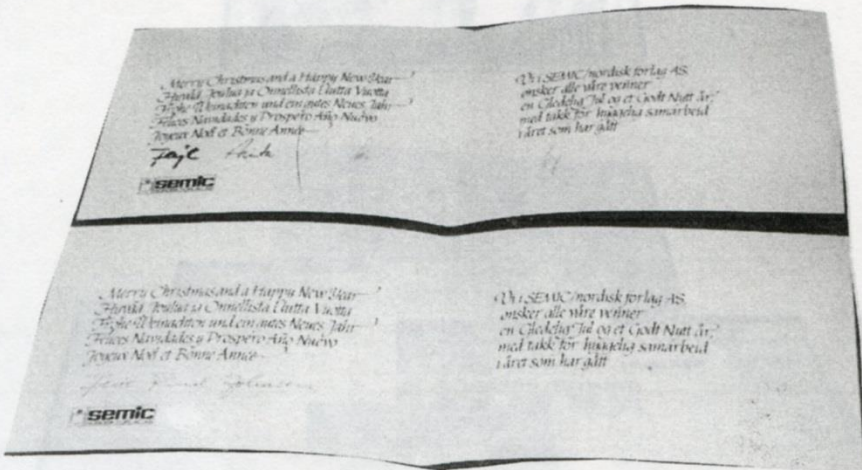 Merry Christmas and a Happy New Year
Hauskaa Joulua ja Onnellista Uutta Vuotta
Frohe Weinachten und ein gutes Neues Jahr
Felices Navidades y Prospero Año Nuevo
Joyeux Noël et Bonne Année
semic
Vi i SEMIC/nordisk forlag AS
ønsker alle våre venner
en Gledelig Jul og et Godt Nytt år,
med takk for hyggelig samarbeid
i året som har gått
Merry Christmas and a Happy New Year
Joulua ja Onnellista Uutta Vuotta
Frohe Weinachten und ein gutes Neues Jahr
Felices Navidades y Prospero Año Nuevo
Joyeux Noël et Bonne Année
semic
Vi i SEMIC/nordisk forlag AS
ønsker alle våre venner
en Gledelig Jul og et Godt Nytt år,
med takk for hyggelig samarbeid
i året som har gått